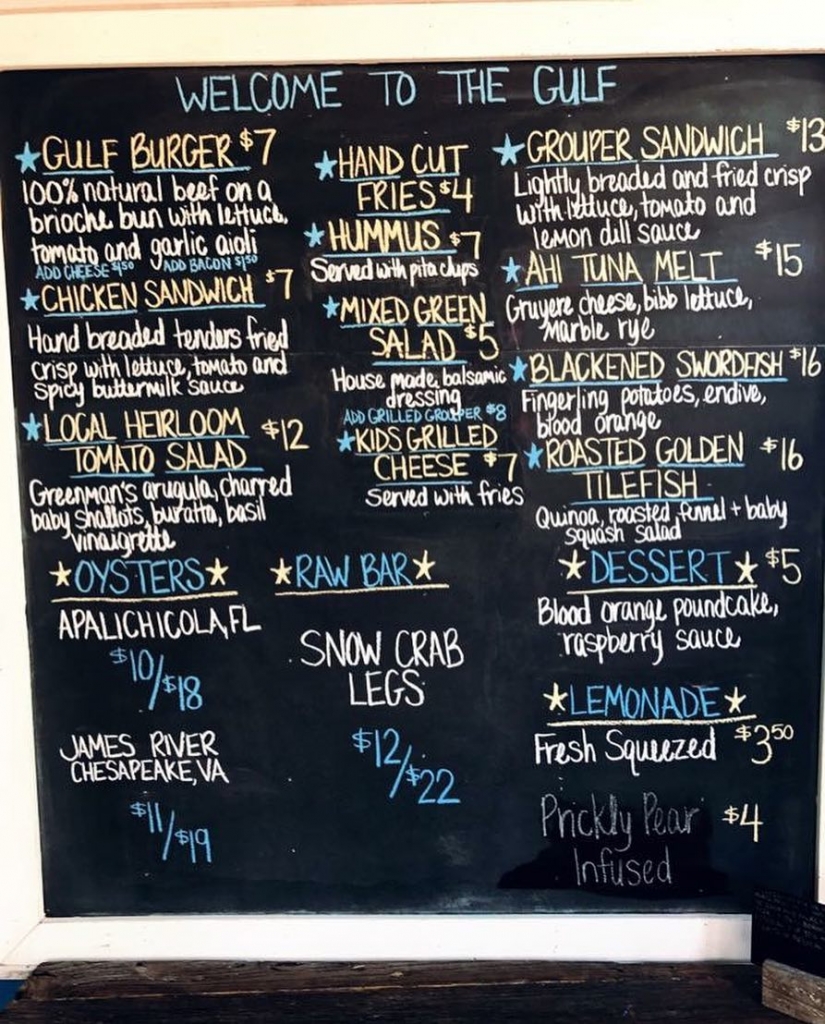 WELCOME TO THE GULF
GULF BURGER $7
100% natural beef on a
brioche bun with lettuce,
tomato and garlic aioli
ADD CHEESE $1.50 ADD BACON $1.50
CHICKEN SANDWICH $7
Hand breaded tenders fried
crisp with lettuce, tomato and
spicy buttermilk sauce
LOCAL HEIRLOOM $12
TOMATO SALAD
Greenman's arugula, charred
baby shallots, buratta, basil
vinaigrette
OYSTERS
APALICHICOLA, FL
$10/$18
JAMES RIVER
CHESAPEAKE, VA
$11/$19
HAND CUT
FRIES $4
HUMMUS $7
Served with pita chips
MIXED GREEN
SALAD $5
House made balsamic
dressing
ADD GRILLED GROUPER $8
KIDS GRILLED
CHEESE $7
Served with fries
RAW BAR
SNOW CRAB
LEGS
$12/$22
GROUPER SANDWICH $13
Lightly breaded and fried crisp
with lettuce, tomato and
lemon dill sauce
AHI TUNA MELT $15
Gruyere cheese, bibb lettuce,
Marble rye
BLACKENED SWORDFISH $16
Fingerling potatoes, endive,
blood orange
ROASTED GOLDEN $16
TILEFISH
Quinoa, roasted fennel + baby
squash salad
DESSERT $5
Blood orange poundcake,
raspberry sauce
LEMONADE
Fresh Squeezed $3.50
Prickly Pear $4
Infused